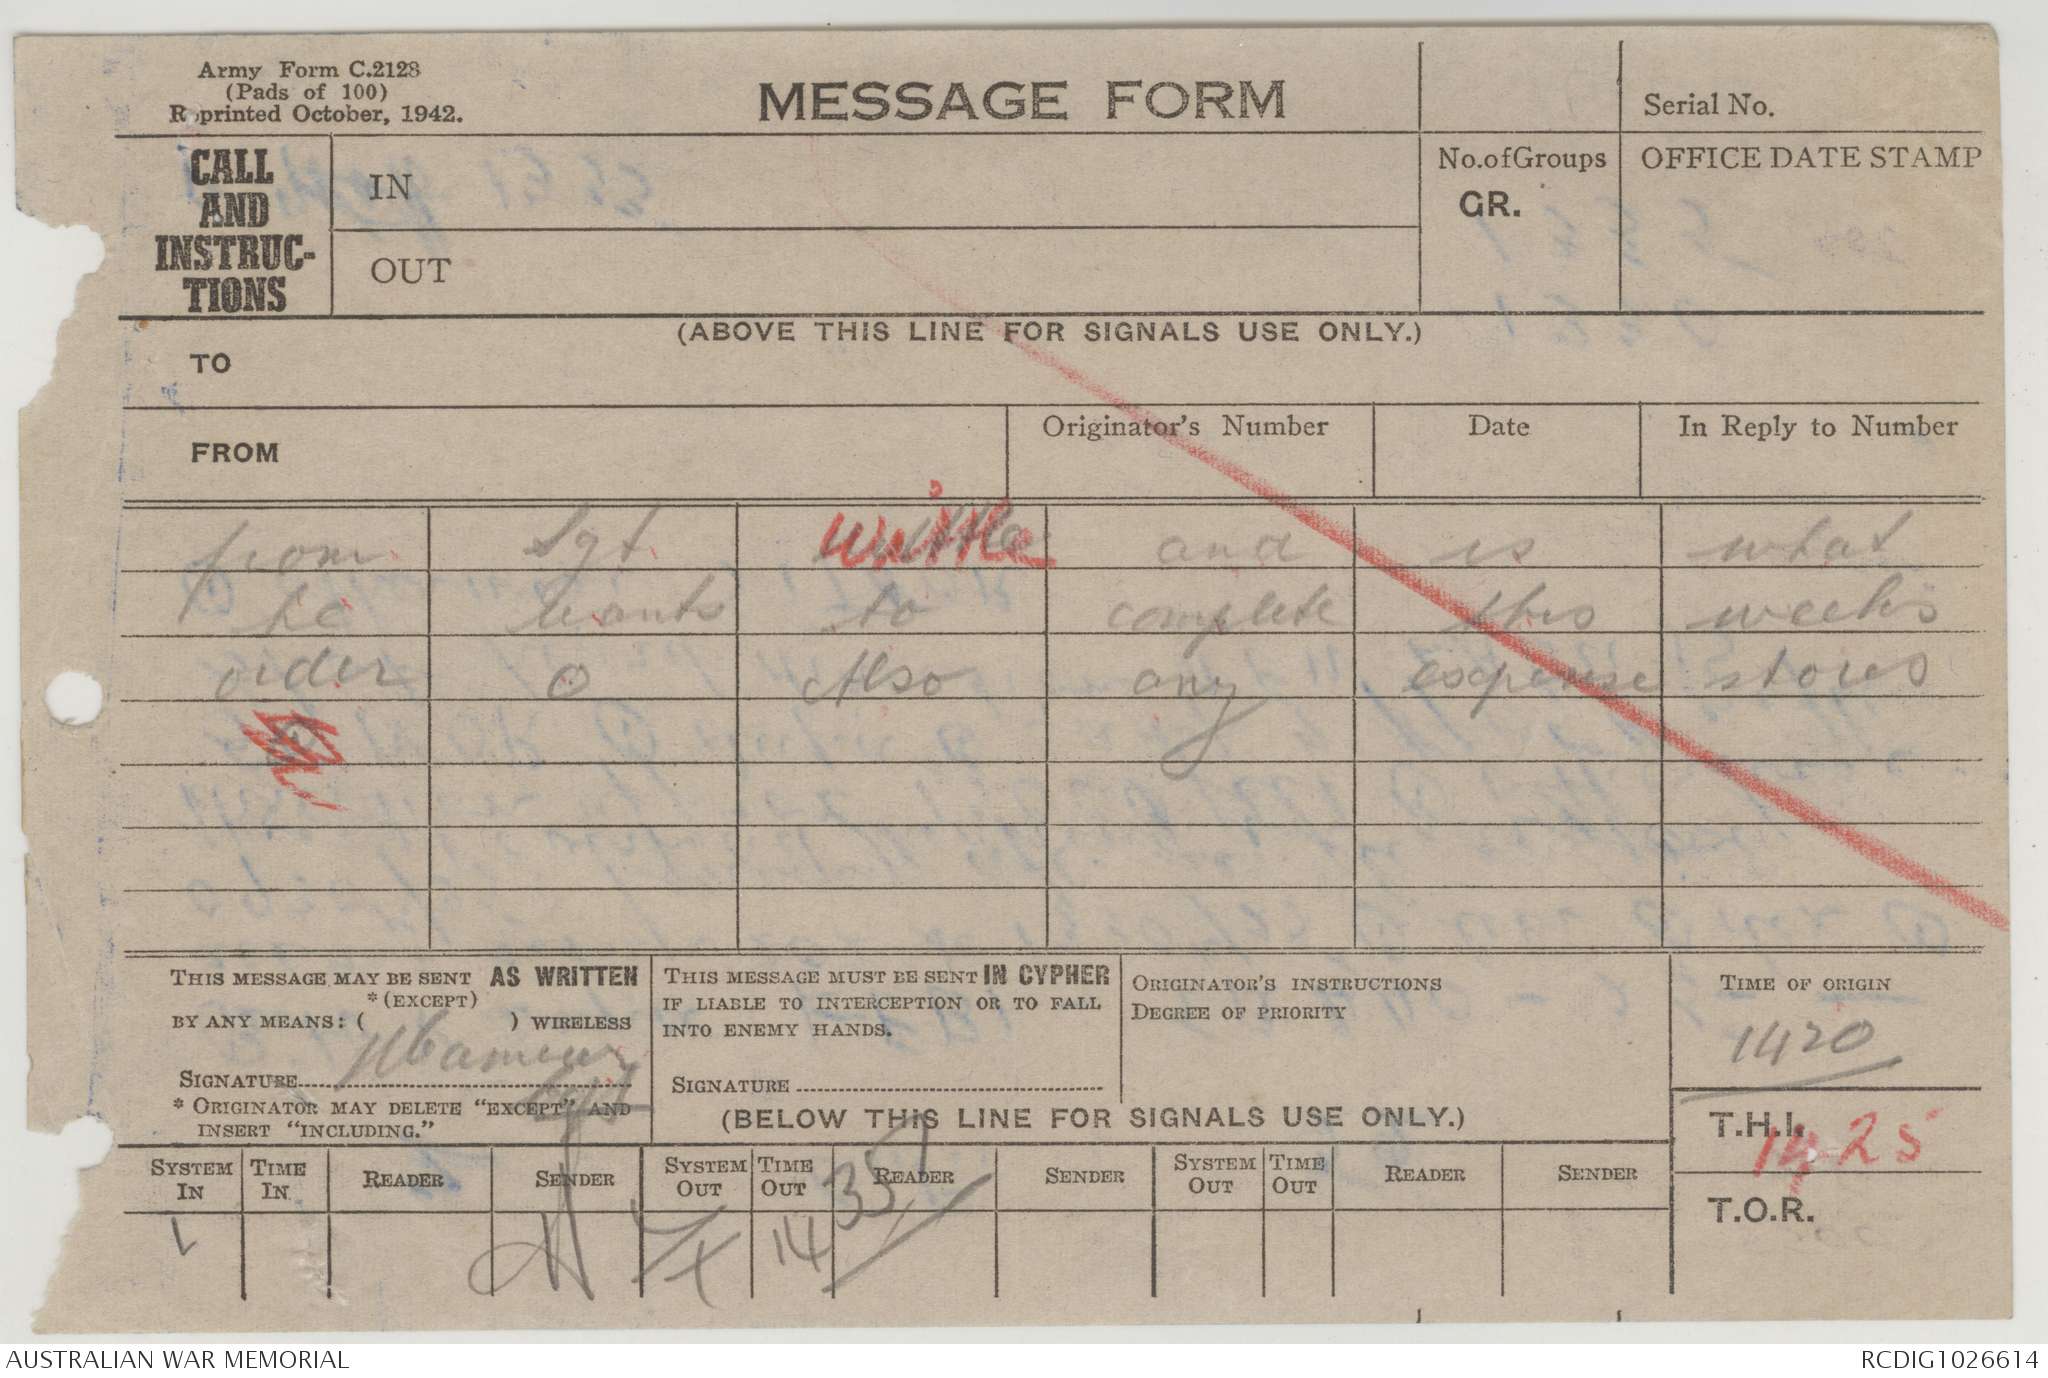 Army Form C.2128
(Pads of 100)
Reprinted October, 1942.
MESSAGE FORM
Serial No.
CALL AND INSTRUC-TIONS
IN
OUT
No. of Groups
GR.
OFFICE DATE STAMP
(ABOVE THIS LINE FOR SIGNALS USE ONLY.)
TO
FROM
Originator's Number
Date
In Reply to Number
from Sgt Writtle and is what
he wants to complete this weeks
order O Also any expense stores
THIS MESSAGE MAY BE SENT AS WRITTEN
*(EXCEPT)
BY ANY MEANS: ( ) WIRELESS
SIGNATURE
* ORIGINATOR MAY DELETE "EXCEPT" AND
INSERT "INCLUDING."
THIS MESSAGE MUST BE SENT IN CYPHER
IF LIABLE TO INTERCEPTION OR TO FALL
INTO ENEMY HANDS.
SIGNATURE
ORIGINATOR'S INSTRUCTIONS
DEGREE OF PRIORITY
TIME OF ORIGIN
1420
(BELOW THIS LINE FOR SIGNALS USE ONLY.)
T.H.I.
1425
T.O.R.
SYSTEM IN
TIME IN
READER
SENDER
SYSTEM OUT
TIME OUT
READER
SENDER
SYSTEM OUT
TIME OUT
READER
SENDER
1435
AUSTRALIAN WAR MEMORIAL
RCDIG1026614